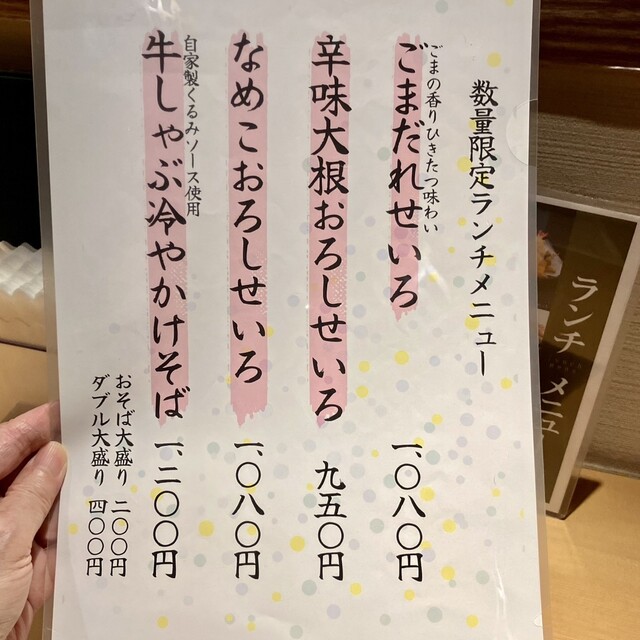 数量限定ランチメニュー
ごまの香りひきたつ味わい
ごまだれせいろ 一、〇八〇円
辛味大根おろしせいろ 九五〇円
なめこおろしせいろ 一、〇八〇円
自家製くるみソース使用
牛しゃぶ冷やかけそば 一、二〇〇円
おそば大盛り 二〇〇円
ダブル大盛り 四〇〇円
ランチメニュー